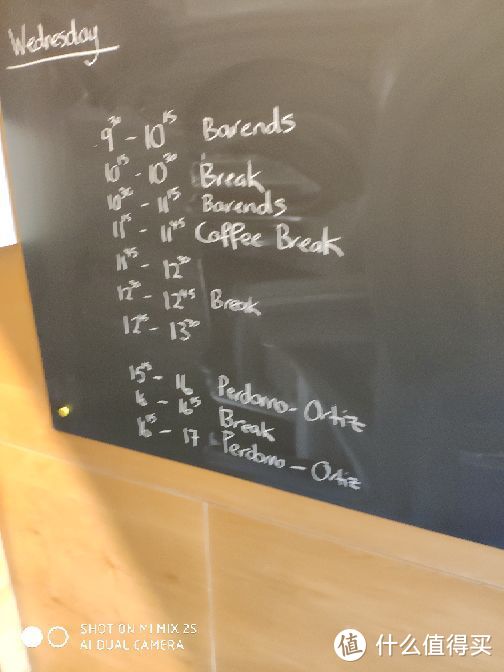 Wednesday
9³⁰ - 10¹⁵ Barends
10¹⁵ - 10³⁰ Break
10³⁰ - 11¹⁵ Barends
11¹⁵ - 11⁴⁵ Coffee Break
11⁴⁵ - 12³⁰
12³⁰ - 12⁴⁵ Break
12⁴⁵ - 13³⁰
15¹⁵ - 16 Perdomo-Ortiz
16 - 16¹⁵ Break
16¹⁵ - 17 Perdomo-Ortiz
SHOT ON MI MIX 2S
AI DUAL CAMERA
值 什么值得买